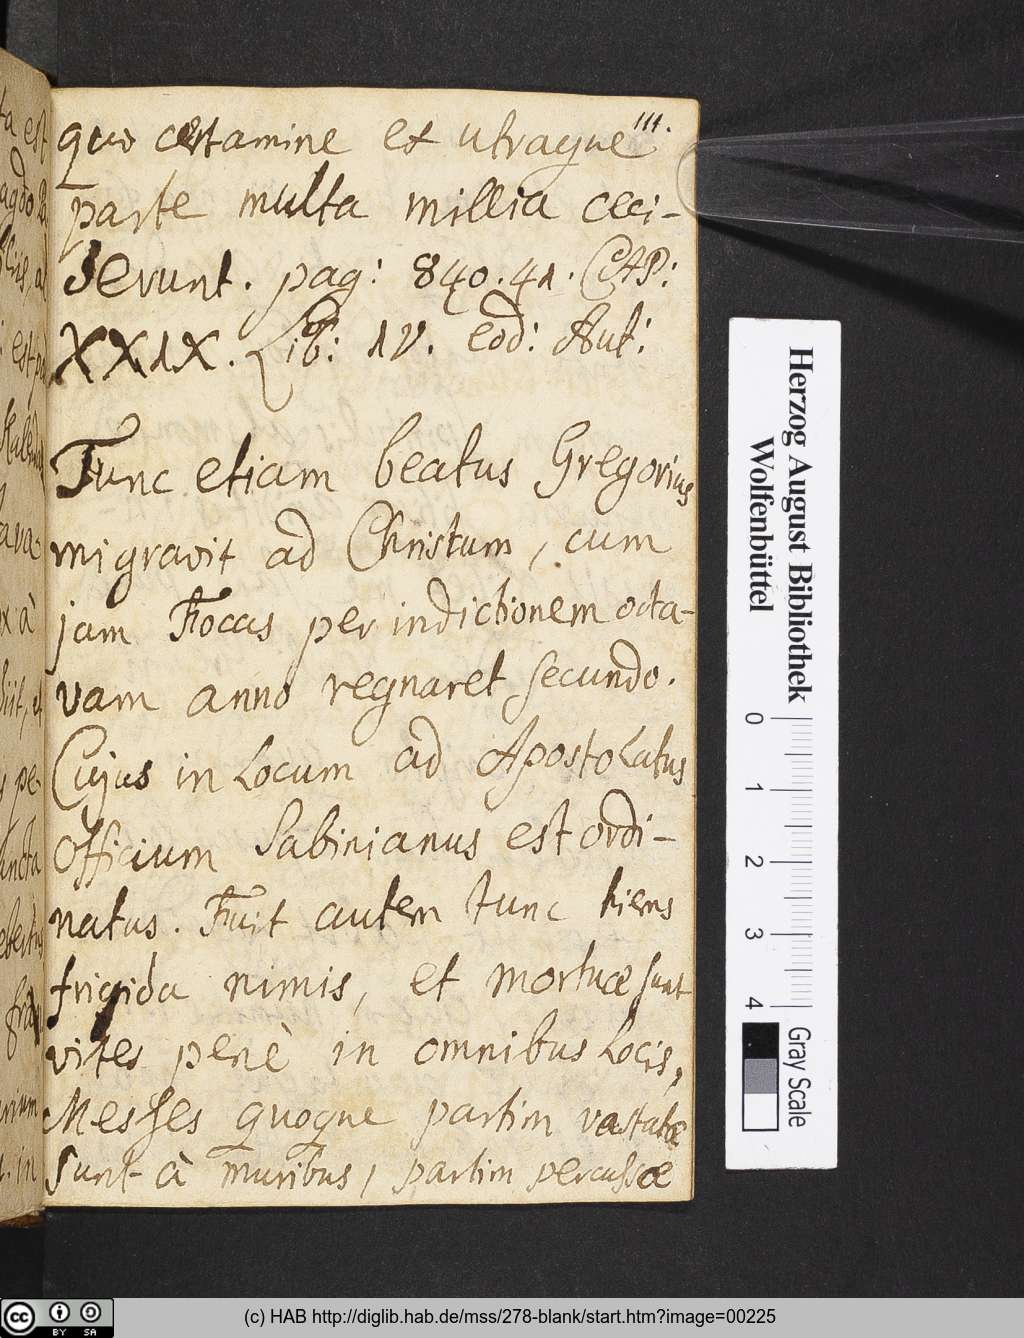 111.
quo certamine ex utraque
parte multa millia ceci-
derunt. pag: 840. 41. CAP:
XXIX. Lib: IV. eod: Aut:
Tunc etiam beatus Gregorius
migravit ad Christum, cum
jam Focas per indictionem octa-
vam anno regnaret secundo.
Cujus in Locum ad ApostoLatus
Officium Sabinianus est ordi-
natus. Fuit autem tunc hiems
frigida nimis, et mortuæ sunt
vites penè in omnibus Locis,
Messes quoque partim vastatæ
sunt à muribus, partim percussæ
Herzog August Bibliothek
Wolfenbüttel
0 1 2 3 4
Gray Scale
cc BY SA
(c) HAB http://diglib.hab.de/mss/278-blank/start.htm?image=00225